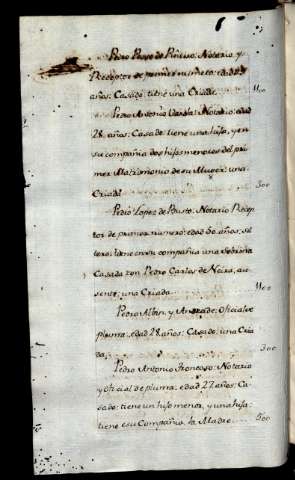 Pedro Pardo de Piñeiro: Notario y
Receptor de primer numero: edad
años: Casado: tiene una Criada 1100
Pedro Antonio Varela: Notario: edad
28. años: Casado: tiene una hija, y en
su compañia dos hijos menores del pri
mer Matrimonio de su Muger: una
Criada 300
Pedro Lopez de Busto: Notario Recep
tor de primer numero: edad 50 años: sol
tero: tiene en su compañia una Sobrina
Casada con Pedro Carlos de Neira, au
sente: una Criada 1100
Pedro Alban, y Andrade: Oficial de
pluma: edad 28 años: Casado: una Cria
da 300
Pedro Antonio Troncoso: Notario
y oficial de pluma: edad 27. años: Ca
sado: tiene un hijo menor, y una hija:
tiene en su Compañia, la Madre 500